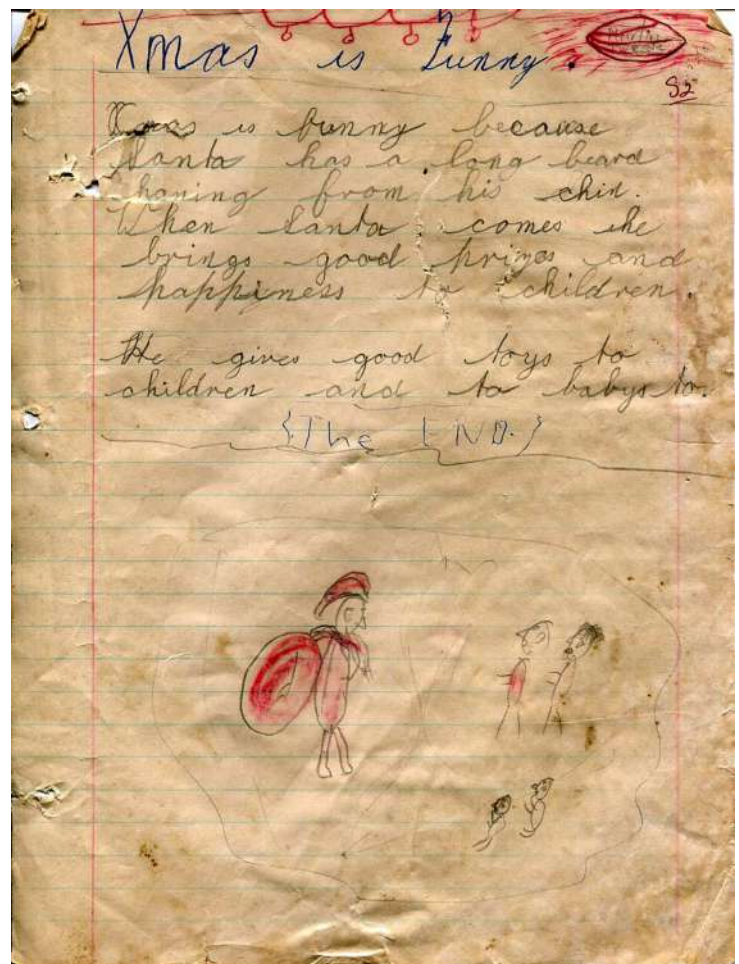 Xmas is Funny.
S2
Xmas is funny because
Santa has a long beard
haning from his chin.
When Santa comes he
brings good prizes and
happiness to children.
He gives good toys to
children and to babys to.
{The END.}